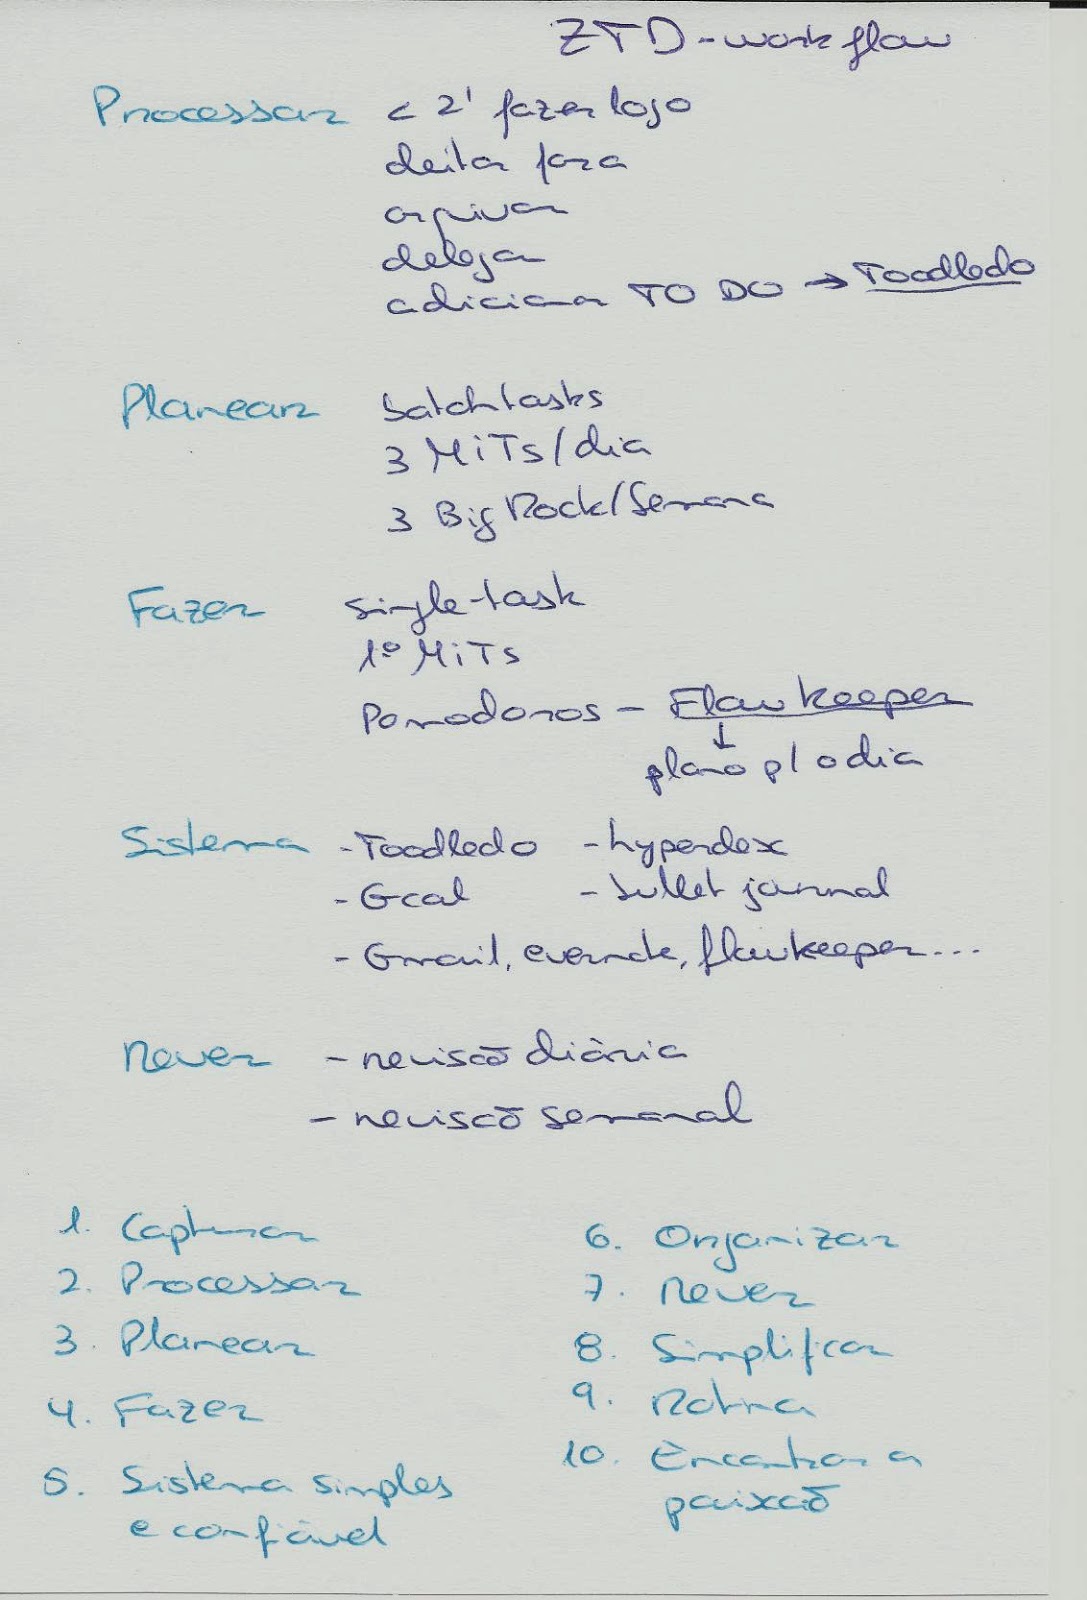 ZTD - workflow
Processar < 2' fazer logo
deitar fora
arquivar
delegar
adicionar TO DO → Toodledo
Planear batch tasks
3 MiTs/dia
3 Big Rock/Semana
Fazer single-task
1º MiTs
Pomodoros - Flowkeeper
↓
plano p/ o dia
Sistema - Toodledo - hyperdex
- Gcal - bullet journal
- Gmail, evernote, flowkeeper...
Rever - revisão diária
- revisão semanal
1. Capturar
2. Processar
3. Planear
4. Fazer
5. Sistema simples
e confiável
6. Organizar
7. Rever
8. Simplificar
9. Rotina
10. Encontrar a
paixão